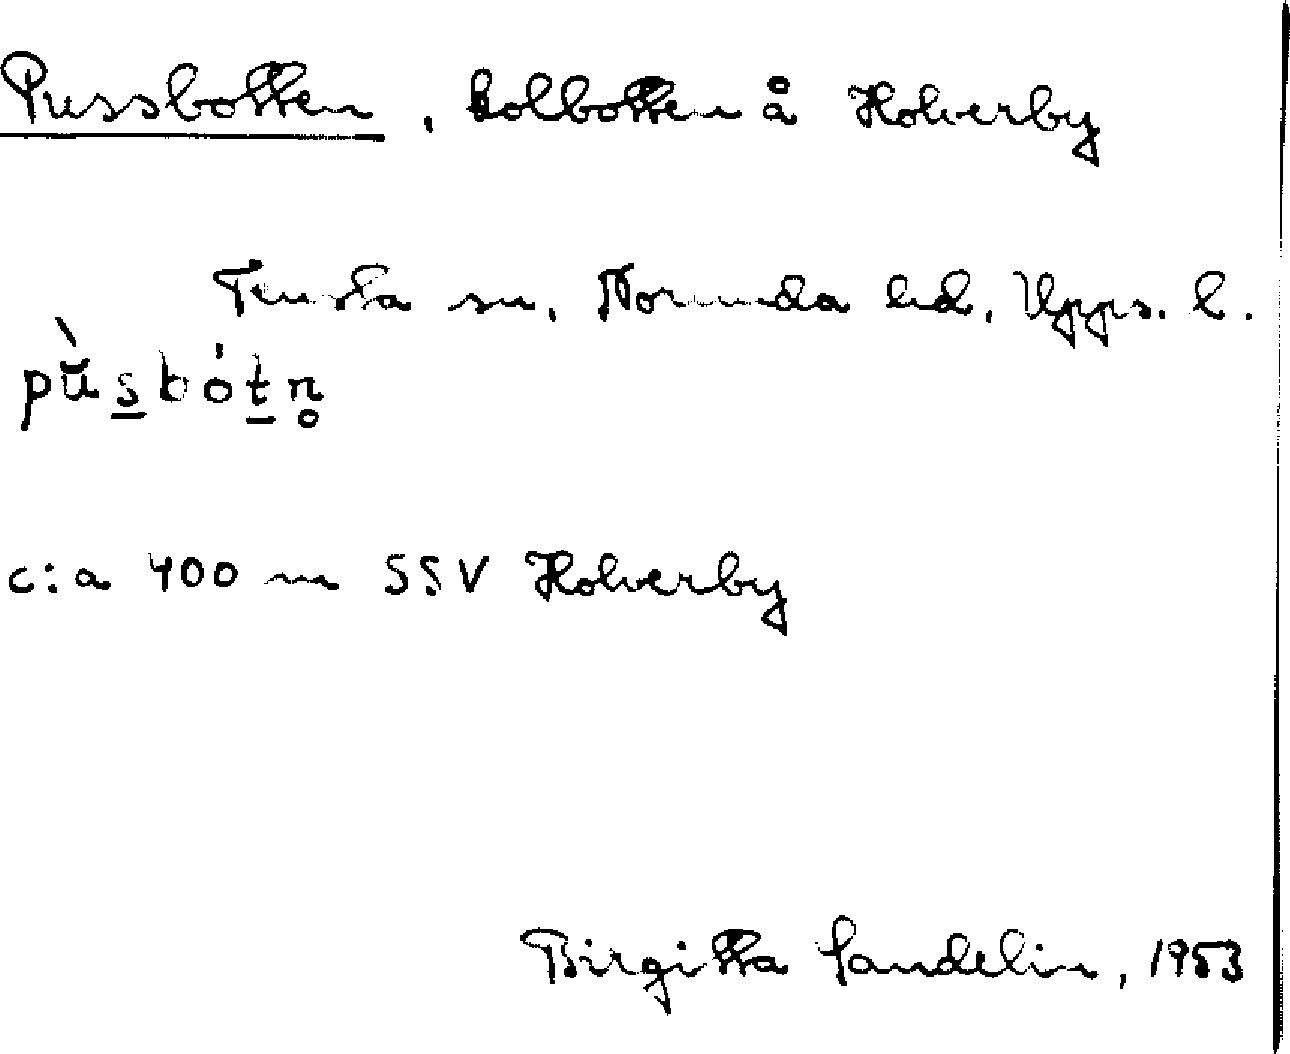 Pussbotten, kolbotten å Holverby
Tensta sn, Norunda hd, Upps. l.
pù̆s̲bót̲n̥
c:a 400 m SSV Holverby
Birgitta Sandelin, 1953